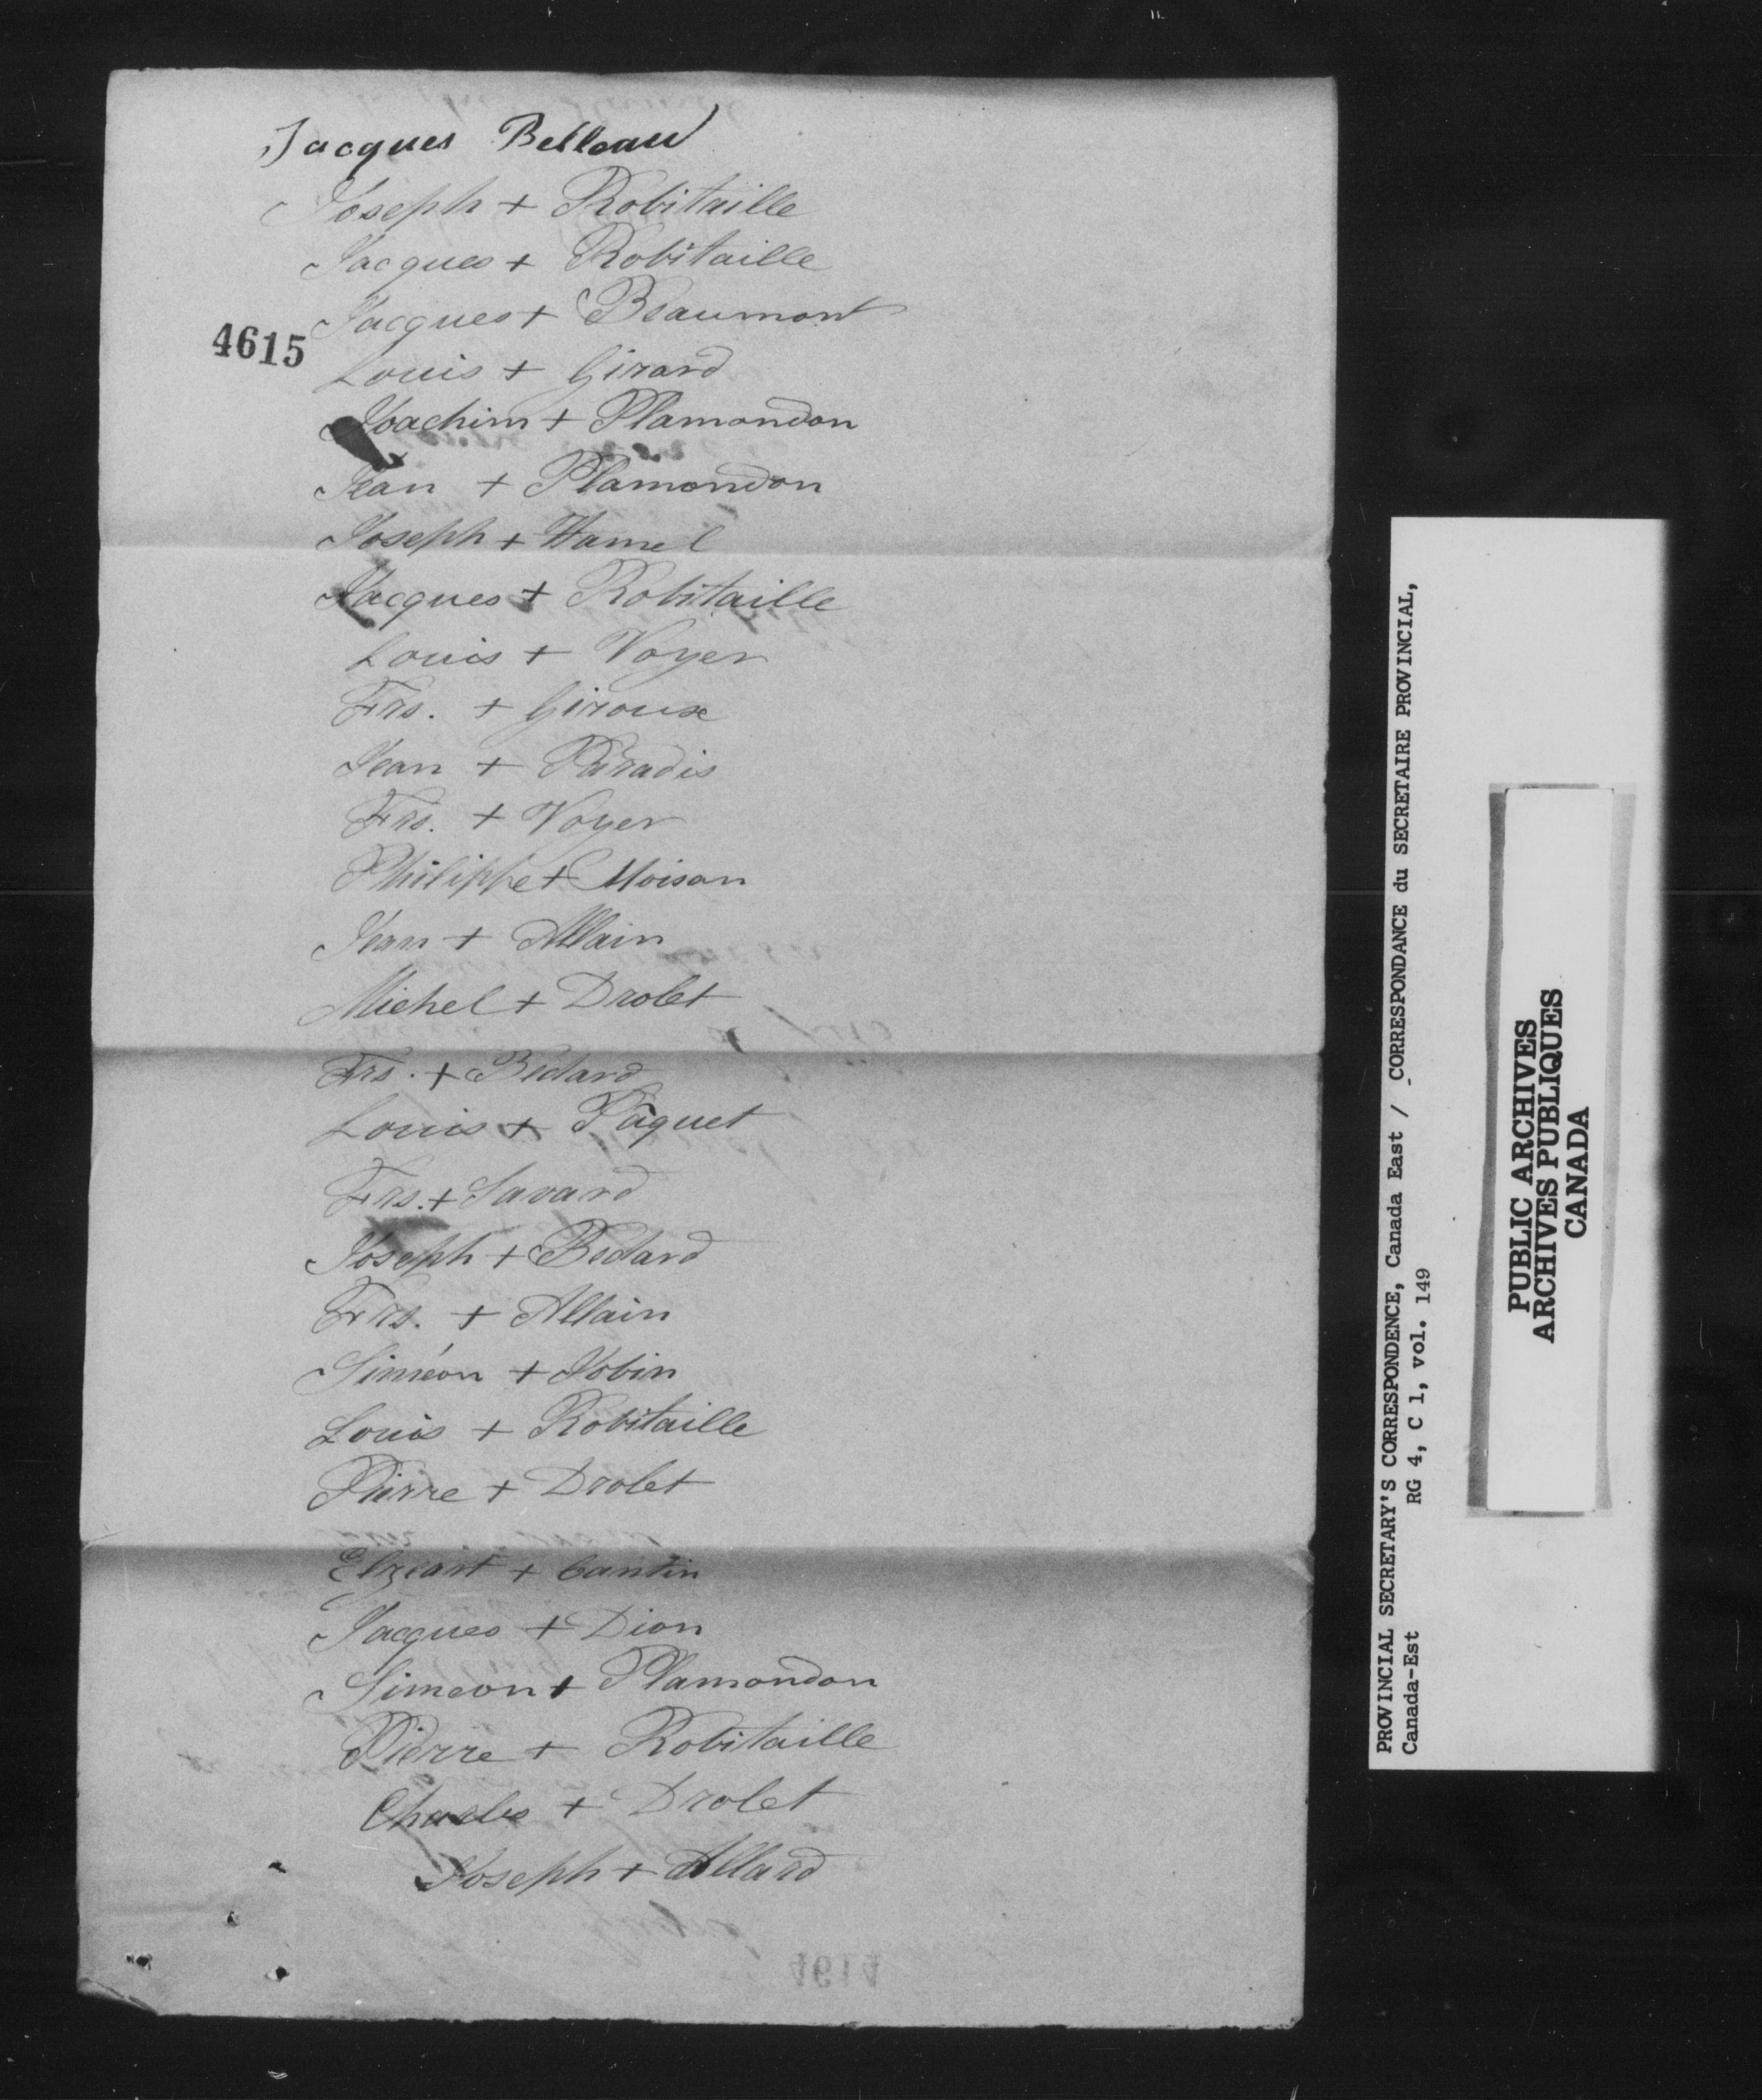 Jacques Belleau
Joseph + Robitaille
Jacques + Robitaille
Jacques + Beaumont
4615
Louis + Girard
Joachim + Plamondon
Jean + Plamondon
Joseph + Hamel
Jacques + Robitaille
Louis + Voyer
Frs. + Giroux
Jean + Paradis
Frs. + Voyer
Philippe + Moisan
Jean + Allain
Michel + Drolet
Frs. + Bedard
Louis + Paquet
Frs. + Savard
Joseph + Bedard
Frs. + Allain
Siméon + Jobin
Louis + Robitaille
Pierre + Drolet
Elzeart + Cantin
Jacques + Dion
Simeon + Plamondon
Pierre + Robitaille
Charles + Drolet
Joseph + Allard
4614
PROVINCIAL SECRETARY'S CORRESPONDENCE, Canada East / CORRESPONDANCE du SECRETAIRE PROVINCIAL,
Canada-Est RG 4, C 1, vol. 149
PUBLIC ARCHIVES
ARCHIVES PUBLIQUES
CANADA